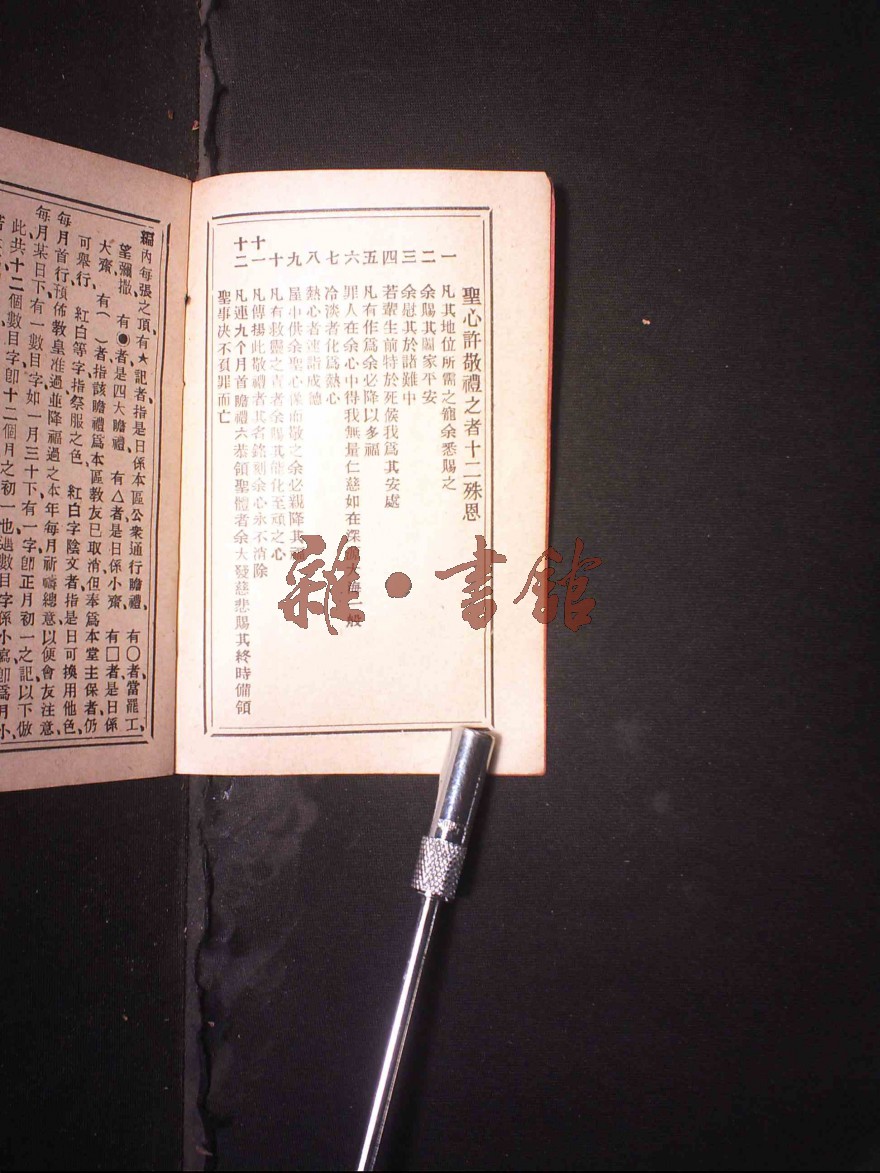 聖心許敬禮之者十二殊恩
一 凡其地位所需之寵余悉賜之
二 余賜其闔家平安
三 余慰其於諸難中
四 若輩生前特於死候我爲其安處
五 凡有作爲余必降以多福
六 罪人在余心中得我無量仁慈如在深大海一般
七 冷淡者化爲熱心
八 熱心者速諧成德
九 屋中供余聖心像而敬之余必親降其福
十 凡有救靈之責者余賜其能化至頑之心
十一 凡傳揚此敬禮者其名銘刻余心永不消除
十二 凡連九个月首瞻禮六恭領聖體者余大發慈悲賜其終時備領
聖事决不負罪而亡
編內每張之頂、有★記者、指是日係本區公衆通行瞻禮、 有○者、當罷工、
望彌撒、 有●者、是四大瞻禮、 有△者、是日係小齋、 有□者、是日係
大齋、 有( )者、指該瞻禮爲本區教友已取消、但奉爲本堂主保者、仍
可舉行、 紅白等字、指祭服之色、 紅白字陰文者、指是日可換用他色、
每月首行、預佈教皇准過並降福過之本年每月祈禱總意、以便會友注意、
每月某日下、有一數目字、如一月三十下有一字、卽正月初一之記、以下倣
此、共十二個數目字、卽十二個月之初一也、遇數目字係小寫、卽爲月小、
雜·書館